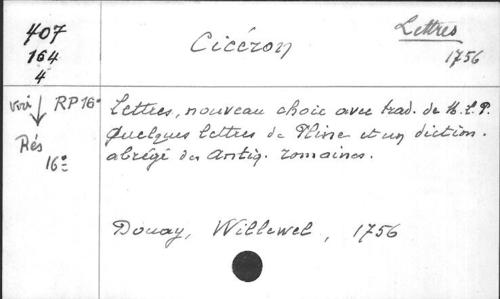 407
164
4
Cicéron
Lettres
1756
voir RP 16°
Rés
16°
Lettres, nouveau choix avec trad. de M. L. P.
Quelques lettres de Pline et un diction.
abrégé des Antiq. romaines.
Douay, Willerwel, 1756